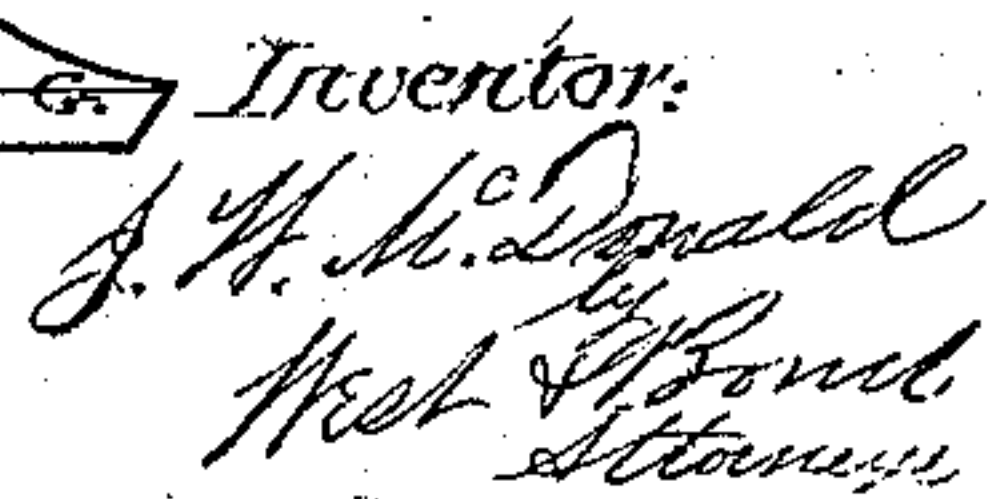 G.
Inventor:
J. H. McDonald
by
West & Bond,
Attorneys,